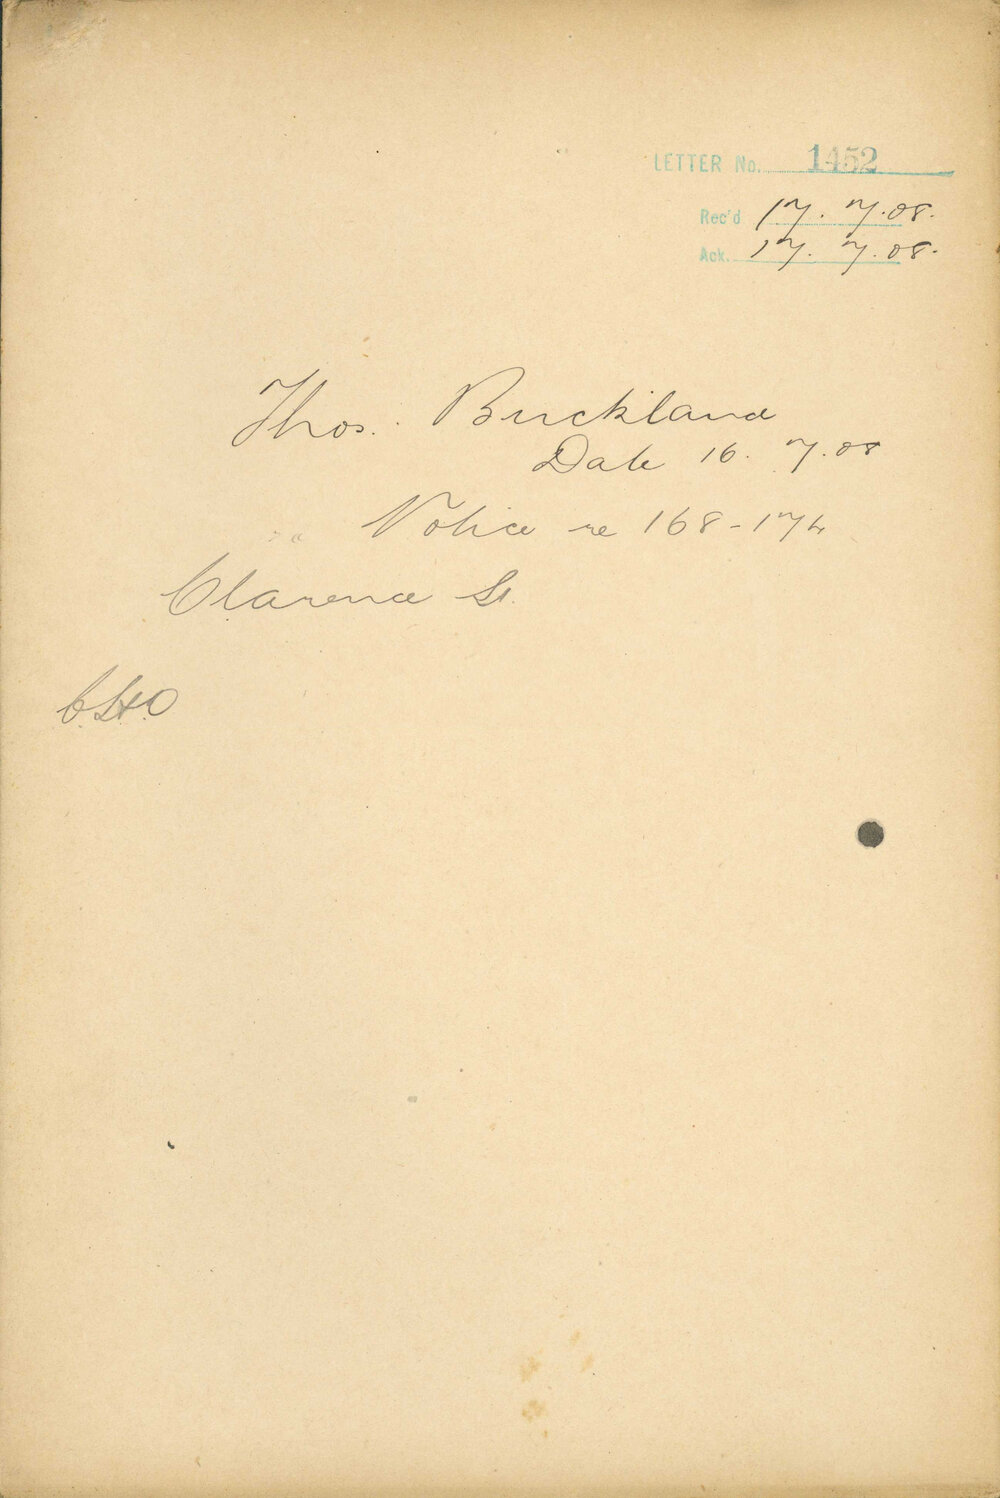 LETTER No. 1452
Rec'd 17. 7.08.
Ack. 17. 7.08.
Thos. Buckland
Date 16. 7.08
Notice re 168-174
Clarence St.
C.S.H.O